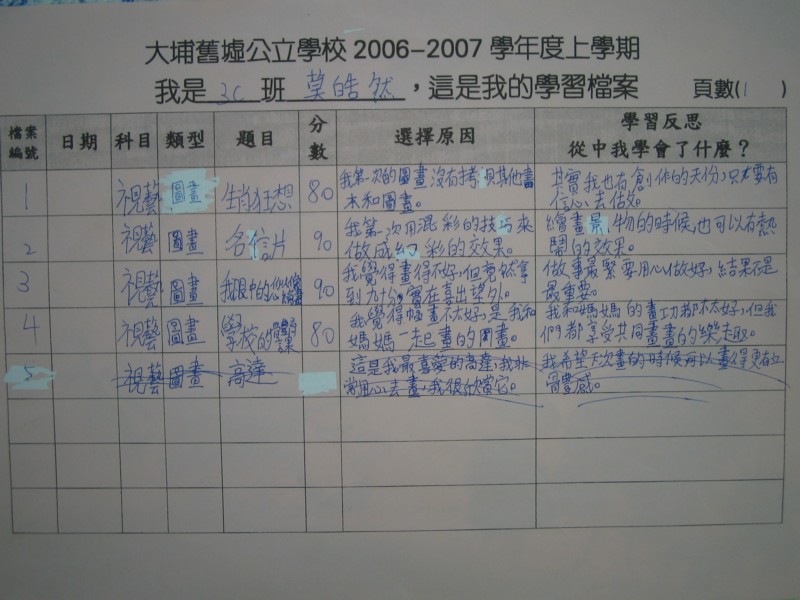 大埔舊墟公立學校 2006-2007 學年度上學期
我是 3C 班 莫皓然，這是我的學習檔案 頁數(1)
檔案編號 日期 科目 類型 題目 分數 選擇原因 學習反思 從中我學會了什麼？
1 視藝 圖畫 生肖狂想 80
我第一次的圖畫沒有參考其他書
本和圖畫。
其實我也有創作的天份，只要有
信心去做。
2 視藝 圖畫 名信片 90
我第一次用混彩的技巧來
做成幻彩的效果。
繪畫景物的時候，也可以有熱
鬧的效果。
3 視藝 圖畫 我眼中的 90
我覺得畫得不好，但竟然拿
到九十分，實在喜出望外。
做事最緊要用心做好，結果不是
最重要。
4 視藝 圖畫 學校的 80
我覺得幅畫不太好，是我和
媽媽一起畫的圖畫。
我和媽媽的畫功都不太好，但我
們都享受共同畫畫的樂趣。
5 視藝 圖畫 高達
這是我最喜愛的高達，我非
常用心去畫，我很欣賞它。
我希望下次畫的時候可以畫得更有立
體感。